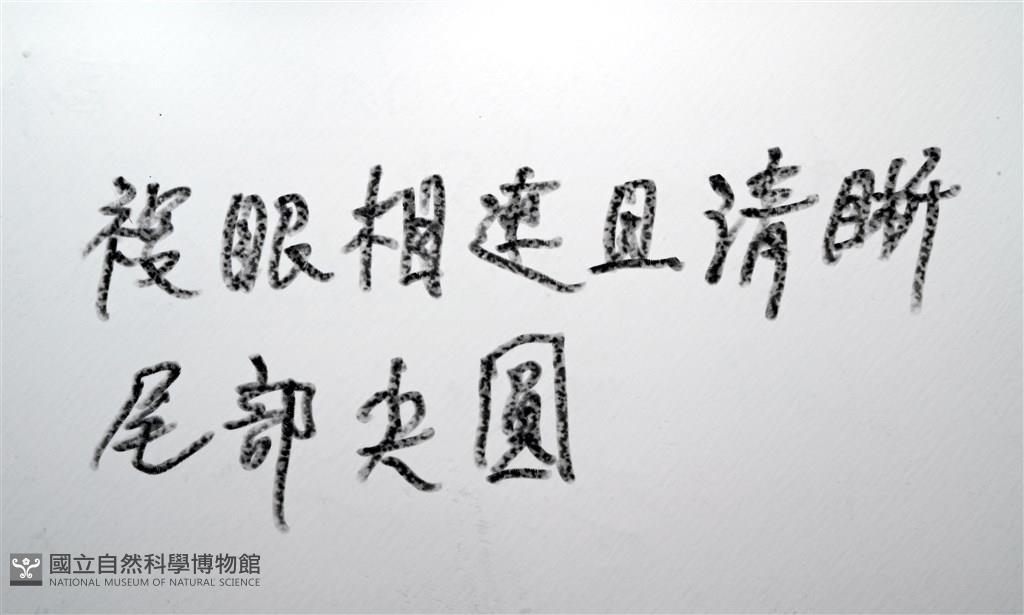 複眼相連且清晰
尾部尖圓
國立自然科學博物館
NATIONAL MUSEUM OF NATURAL SCIENCE